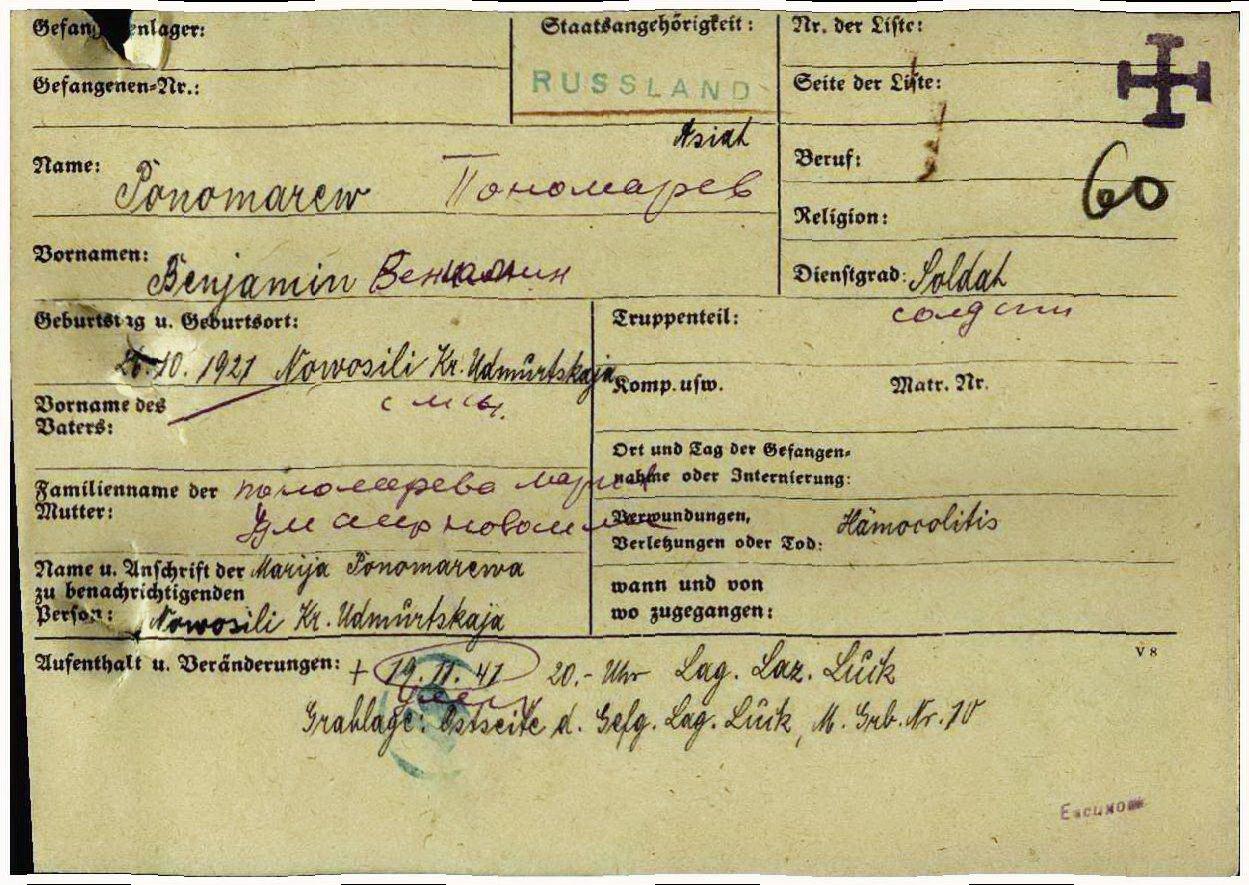 Gefangenenlager:
Staatsangehörigkeit:
Nr. der Liste:
RUSSLAND
Seite der Liste:
Gefangenen-Nr.:
Asiat
Name: Ponomarew Пономарев
Beruf:
60
Religion:
Vornamen: Benjamin Вениамин
Dienstgrad: Soldat
солдат
Geburtstag u. Geburtsort:
Truppenteil:
26.10. 1921 Nowosili Kr. Udmurtskaja
Komp. usw. Matr. Nr.
Vorname des
Vaters:
Ort und Tag der Gefangen-
nahme oder Internierung:
Familienname der Пономарева
Mutter:
Verwundungen, Hämocolitis
Verletzungen oder Tod:
Name u. Anschrift der Marija Ponomarewa
zu benachrichtigenden
Person: Nowosili Kr. Udmurtskaja
wann und von
wo zugegangen:
V 8
Aufenthalt u. Veränderungen: + 19.11.41 20.- Uhr Lag. Laz. Luck
умер
Grablage: Ostseite d. Gefg. Lag. Luck, M. Grb. Nr. 10